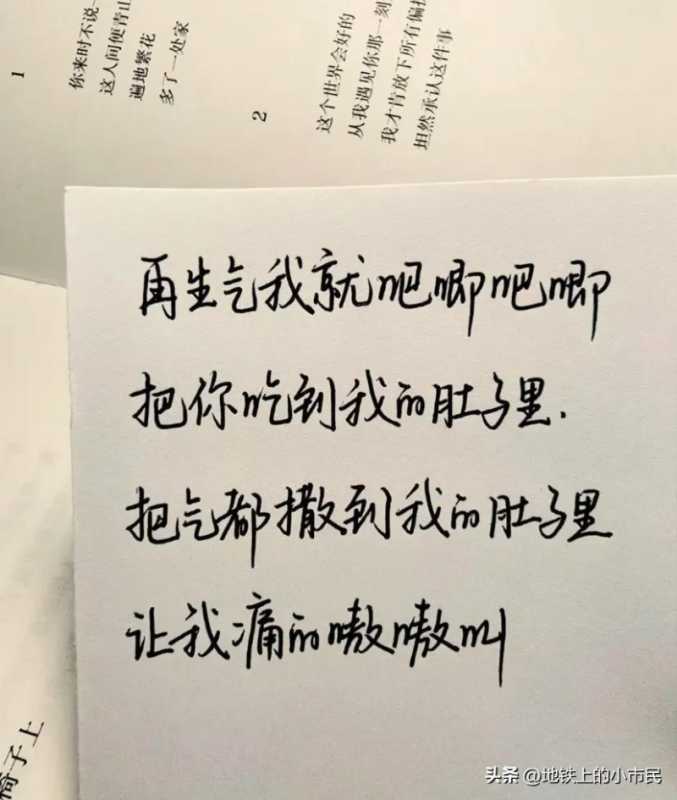 1
你来时不说一
这人间便青山
遍地繁花
多了一处家
2
这个世界会好的
从我遇见你那一刻
我才肯放下所有偏
坦然承认这件事
再生气我就吧唧吧唧
把你吃到我的肚子里.
把气都撒到我的肚子里
让我痛的嗷嗷叫
椅子上
头条 @地铁上的小市民